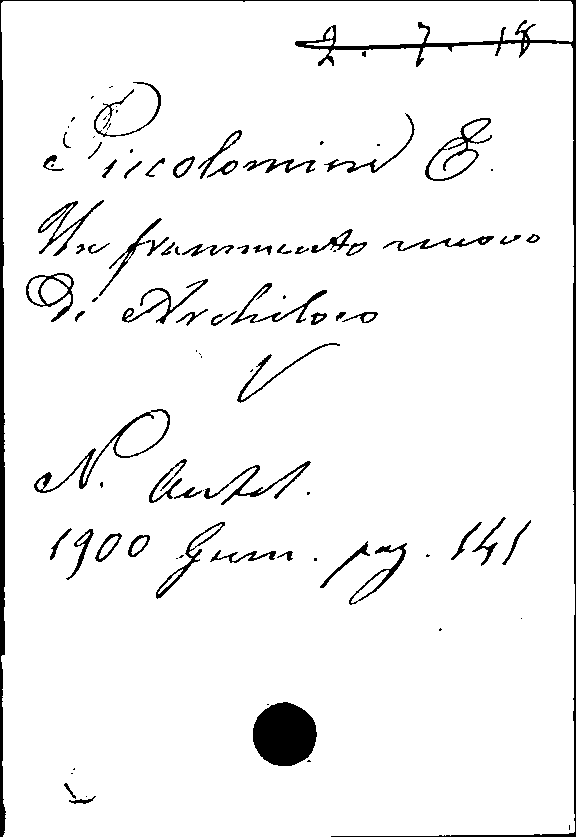 2. 7. 18
Piccolomini E.
Un frammento nuovo
di Archiloco
V
N. Antol.
1900 Genn. pag. 141